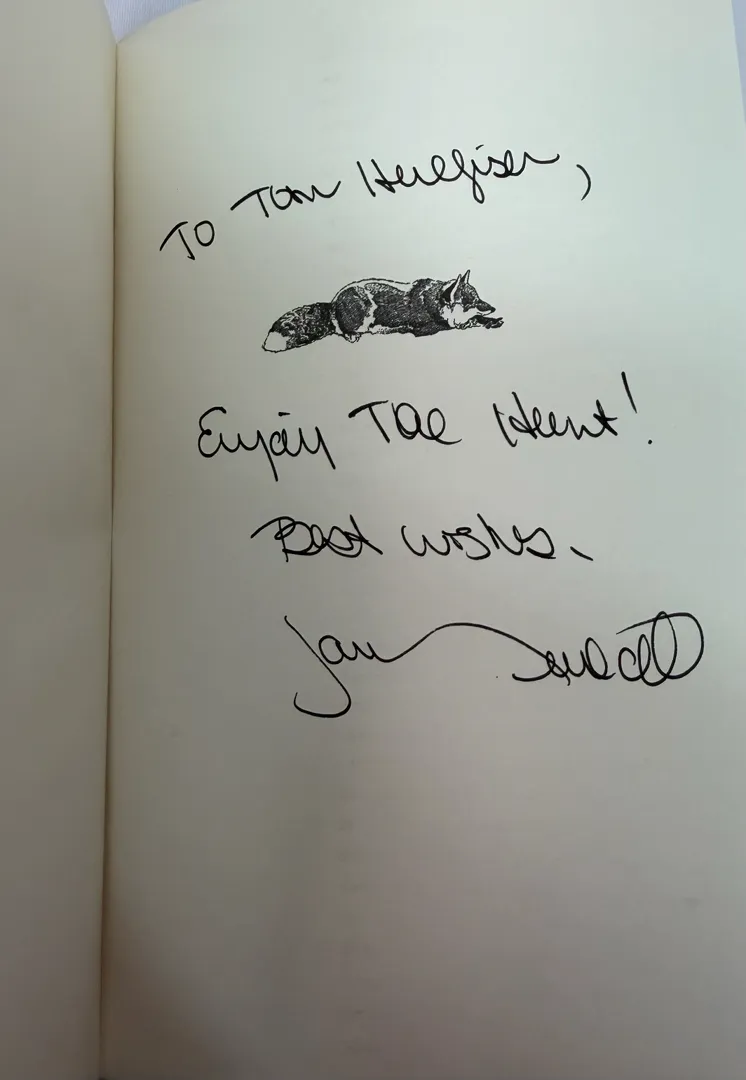 To Tom
Enjoy The Hunt!
Best wishes,
Jan